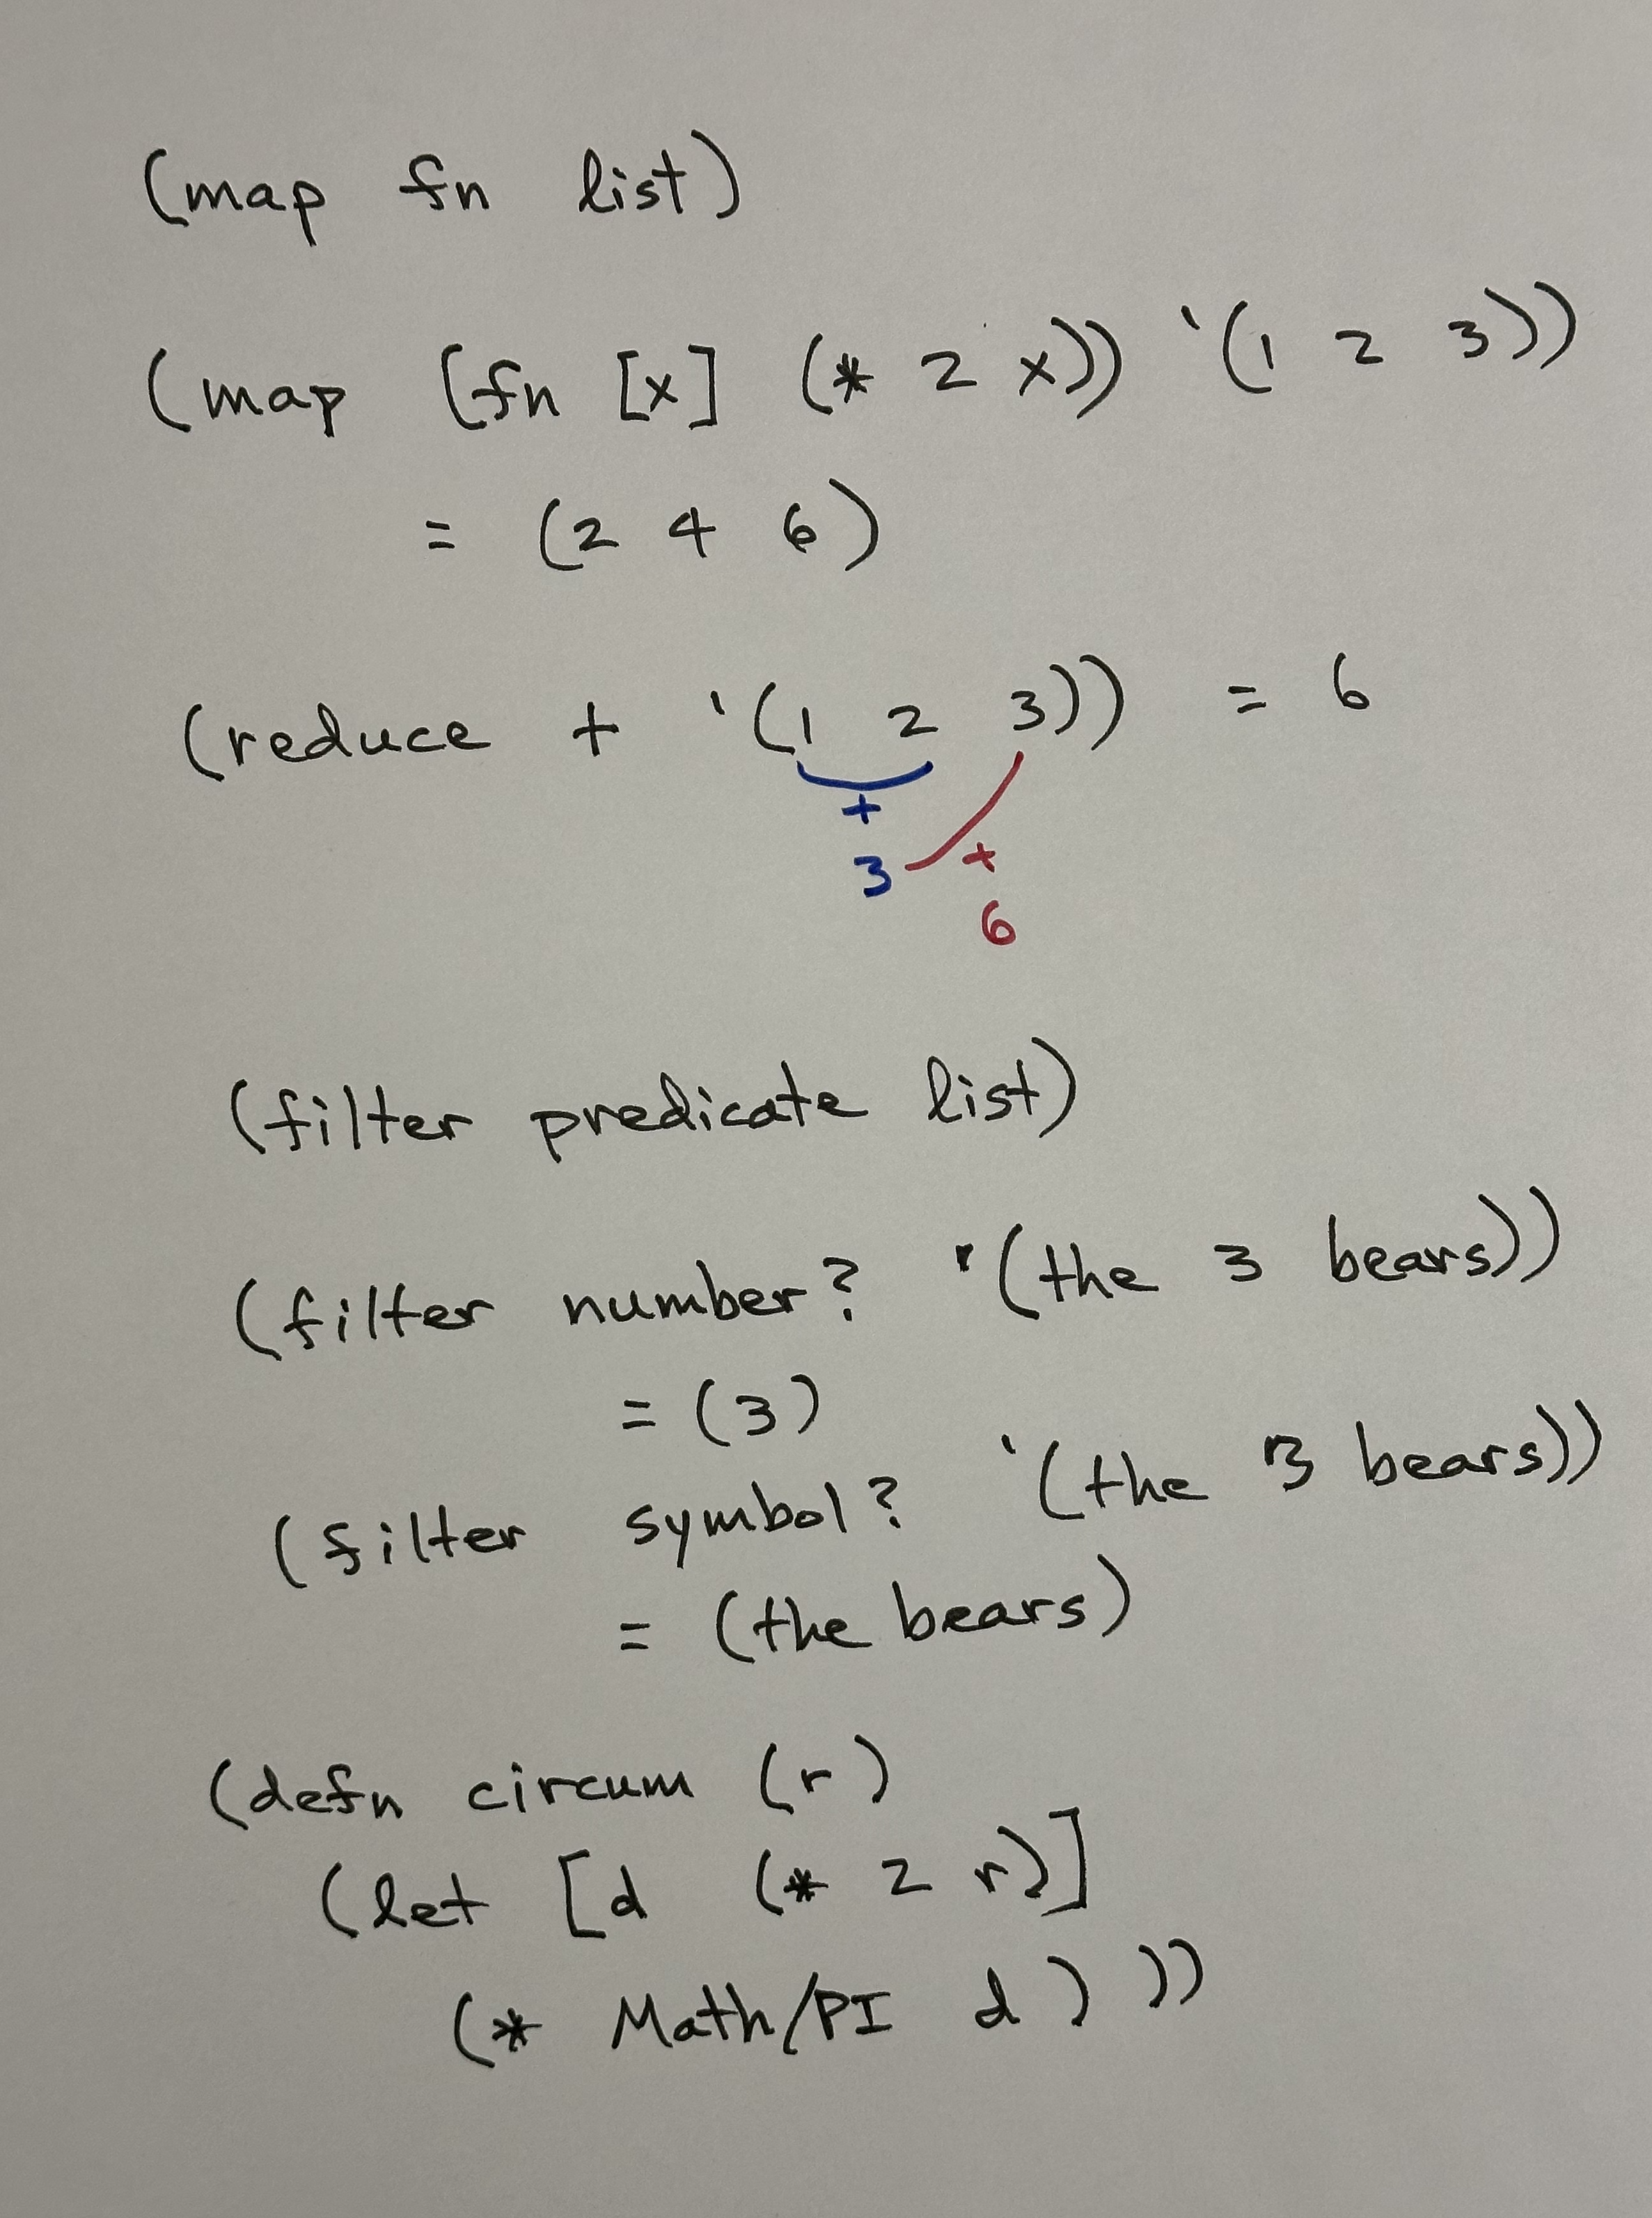 (map fn list)
(map (fn [x] (* 2 x)) '(1 2 3))
= (2 4 6)
(reduce + '(1 2 3)) = 6
+
3 +
6
(filter predicate list)
(filter number? '(the 3 bears))
= (3)
(filter symbol? '(the 3 bears))
= (the bears)
(defn circum (r)
(let [d (* 2 r)]
(* Math/PI d)))